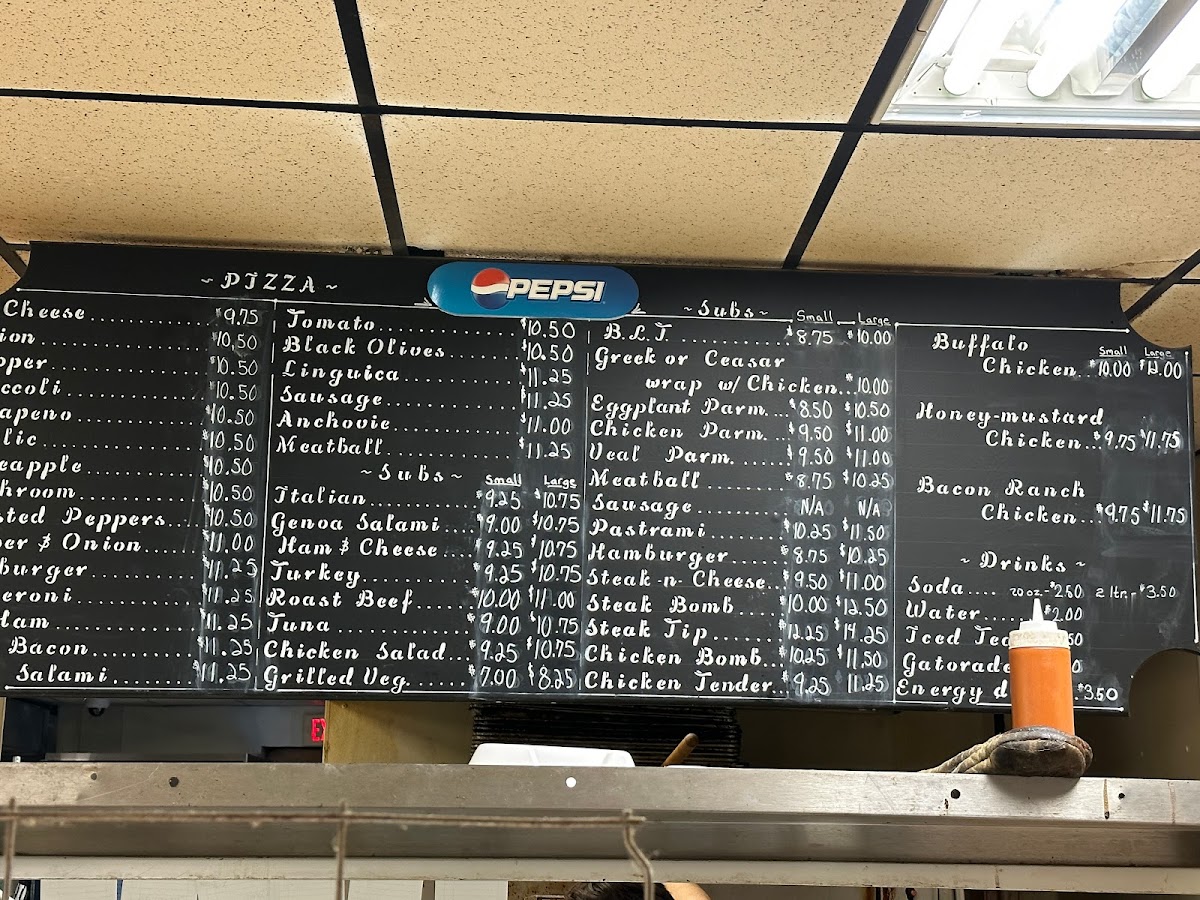 ~ PIZZA ~
Cheese $9.75
ion $10.50
pper $10.50
occoli $10.50
apeno $10.50
lic $10.50
eapple $10.50
hroom $10.50
sted Peppers $10.50
per & Onion $11.00
burger $11.25
eroni $11.25
Ham $11.25
Bacon $11.25
Salami $11.25
PEPSI
Tomato $10.50
Black Olives $10.50
Linguica $11.25
Sausage $11.25
Anchovie $11.00
Meatball $11.25
~ Subs ~ Small Large
Italian $9.25 $10.75
Genoa Salami $9.00 $10.75
Ham & Cheese $9.25 $10.75
Turkey $9.25 $10.75
Roast Beef $10.00 $11.00
Tuna $9.00 $10.75
Chicken Salad $9.25 $10.75
Grilled Veg. $7.00 $8.25
~ Subs ~ Small Large
B.L.T. $8.75 $10.00
Greek or Ceasar
wrap w/ Chicken $10.00
Eggplant Parm $8.50 $10.50
Chicken Parm. $9.50 $11.00
Veal Parm. $9.50 $11.00
Meatball $8.75 $10.25
Sausage N/A N/A
Pastrami $10.25 $11.50
Hamburger $8.75 $10.25
Steak-n-Cheese $9.50 $11.00
Steak Bomb $10.00 $12.50
Steak Tip $12.25 $14.25
Chicken Bomb $10.25 $11.50
Chicken Tender $9.25 11.25
Buffalo Small Large
Chicken $10.00
Honey-mustard
Chicken $9.75 $11.75
Bacon Ranch
Chicken $9.75 $11.75
~ Drinks ~
Soda 20 oz - $2.50 2 ltr - $3.50
Water $2.00
Iced Tea 50
Gatorade 0
Energy d $3.50
EX